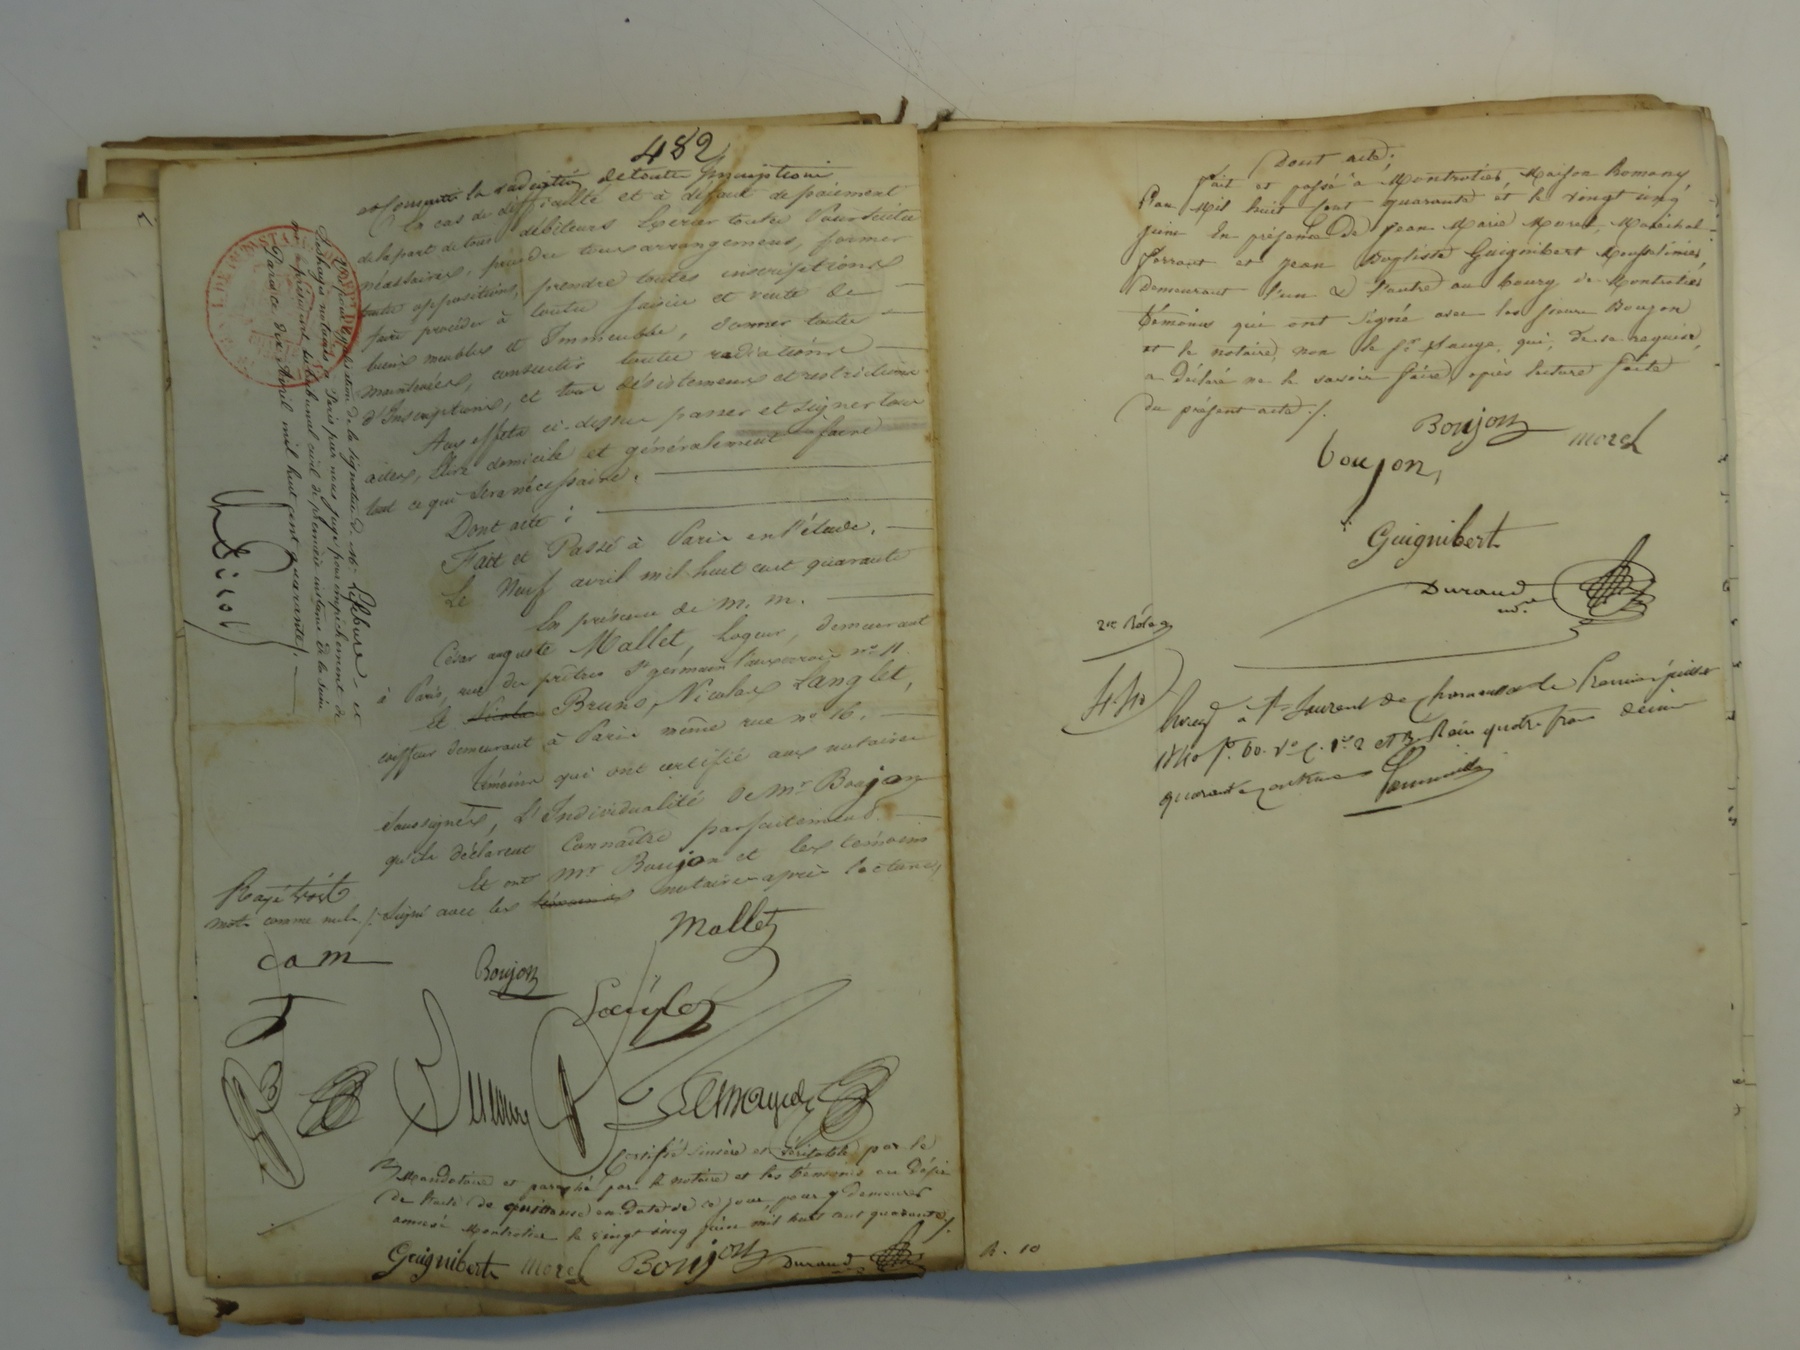 482
et consentir la radiation de toutes inscriptions
En cas de difficulté et à défaut de paiement
de la part de tous débiteurs Exercer toutes Poursuites
nécessaires, prendre tous arrangemens, former
toutes oppositions, prendre toutes inscriptions
faire procéder à toutes saisies et vente de
biens meubles et Immeubles, donner toutes
mainlevées, consentir toutes radiations
d'Inscriptions, et tous désistemens et restrictions
Aux effets ci-dessus passer et signer tous
actes, élire domicile et généralement faire
tout ce qui sera nécessaire.
Dont acte :
Fait et Passé à Paris en l'étude.
Le Neuf avril mil huit cent quarante
En présence de M. M.
César auguste Mallet, Logeur, demeurant
à Paris, rue des prêtres St germain l'auxerrois no 11.
et Nicolas Bruno, Nicolas Langlet,
coiffeur demeurant à Paris même rue no 16.
témoins qui ont certifié aux notaires
soussignés, L'Individualité de Mr Boujon
qu'ils déclarent Connaître parfaitement.
Et ont Mr Boujon et les témoins
Signé avec les témoins notaires après lecture,
Rayé trois
mots comme nuls ./.
Vu pour légalisation de la signature de Me Lefebure et
son collègue notaires à Paris par nous juge pour empêchement de
Mr le président du tribunal civil de première instance de la Seine
Paris ce dix Avril mil huit cent quarante.
cam
Mallet
Boujon
Certifié sincère et véritable par le
Mandataire et paraphé par le notaire et les témoins au désir
de l'acte de quittance en date de ce jour, pour y demeurer
annexé Montrotier le vingt cinq juin mil huit cent quarante ./.
Guignibert Morel Boujon Durand
Dont acte;
fait et passé à Montrotier, Maison Romany
L'an Mil huit cent quarante et le vingt cinq
juin En présence de Jean Marie Morel, Maréchal
ferrant et Jean Baptiste Guignibert
demeurant l'un & l'autre au bourg de Montrotier
témoins qui ont signé avec les sieurs Boujon
et le notaire, non le sr qui, de ce requis,
a déclaré ne le savoir faire, après lecture faite
du présent acte ./.
Boujon Morel
boujon,
Guignibert
Durand
nre
2 Rôles
4.40
Enreg à St Laurent de Chamousset le Premier juillet
1840 fo 60. Vo C. 1re 2 et 3 Reçu quatre francs décime
quarante centimes
R. 10